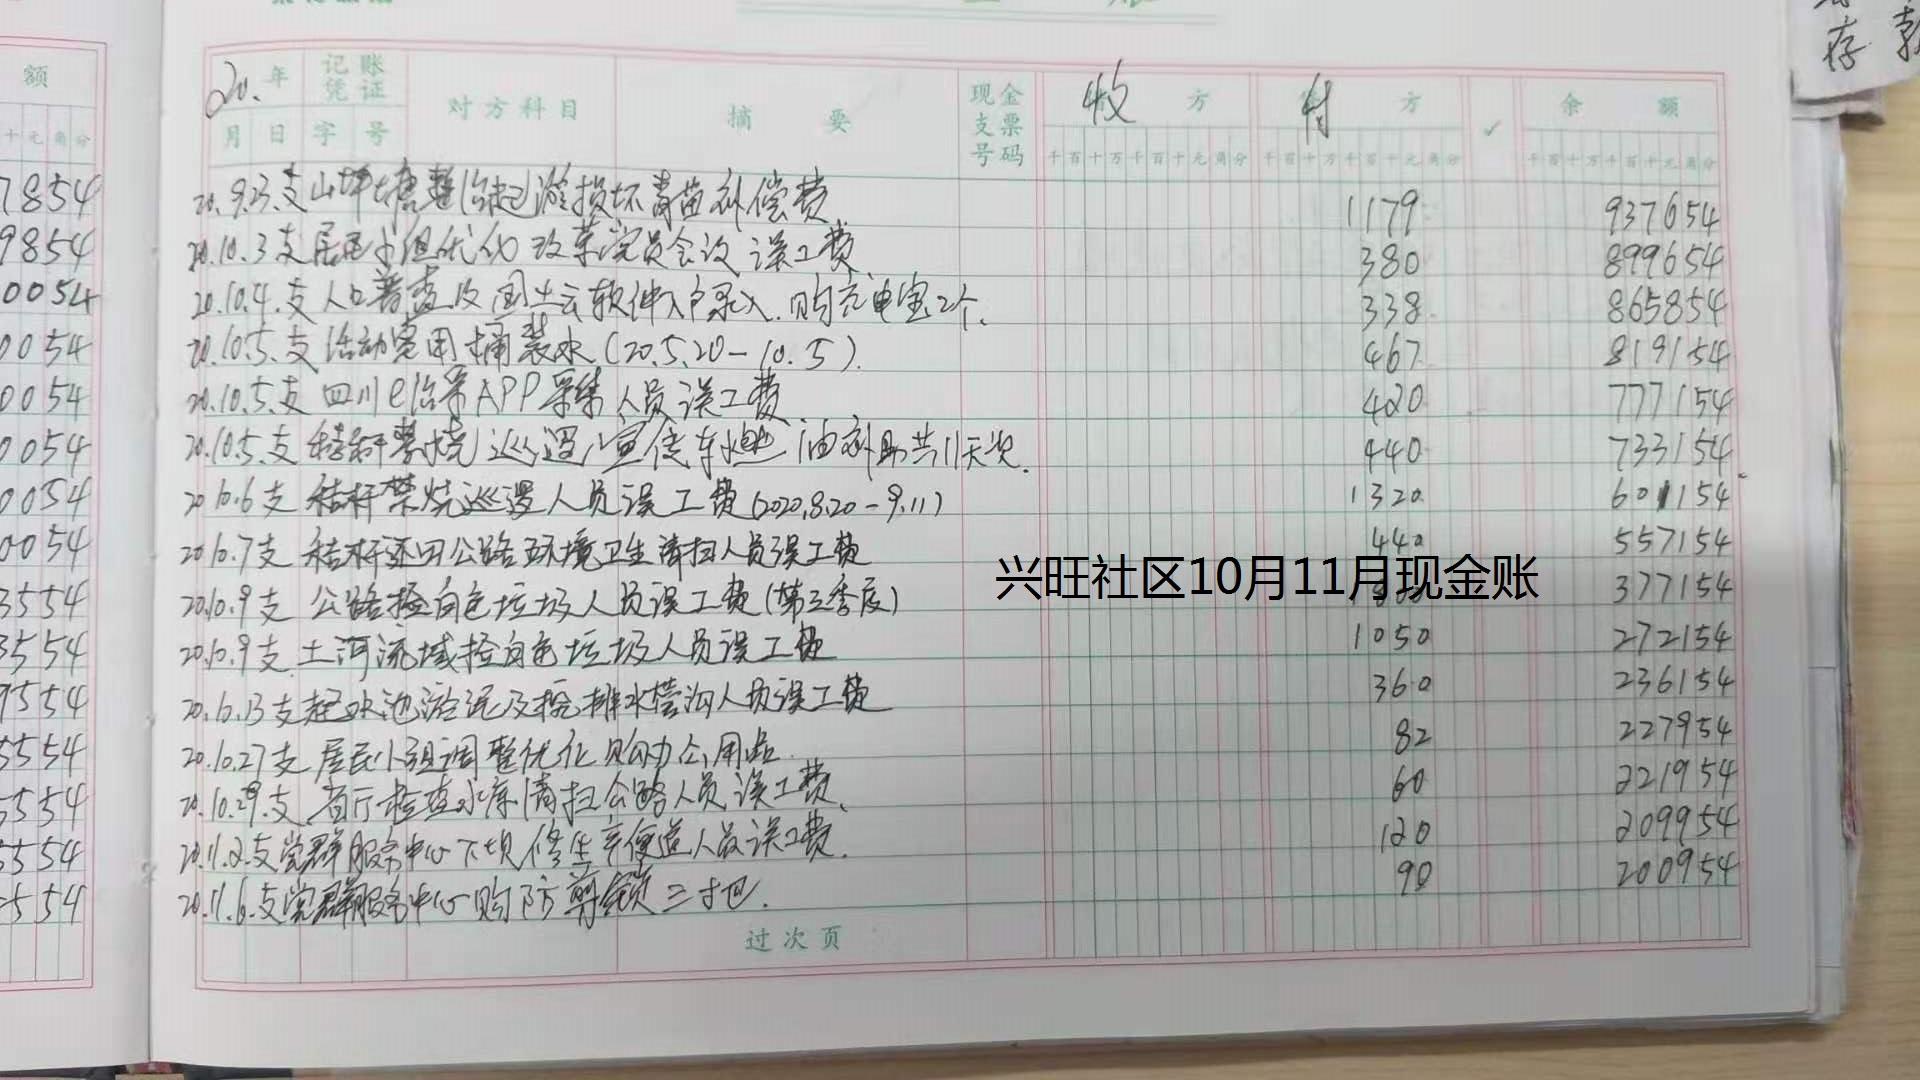 额
十元角分
7854
9854
0054
0054
0054
0054
0054
0054
3554
3554
9554
5554
5554
5554
5554
存
20.年 记账凭证 对方科目 摘要 现金支票号码 收方 付方 ✓ 余额
月 日 字 号 千百十万千百十元角分 千百十万千百十元角分 千百十万千百十元角分
20.9.23.支山坪塘整治起淤损坏青苗补偿费 1179 937654
20.10.3支居民小组优化改革党员会议误工费 380 899654
20.10.4.支人口普查及国土云软件入户录入.购充电宝2个. 338 865854
20.10.5.支活动室用桶装水(20.5.20-10.5). 467 819154
20.10.5.支四川e治采APP采集人员误工费 420 777154
20.10.5.支秸秆禁烧巡逻宣传车燃油补助共11天次. 440 733154
20.10.6支秸秆禁烧巡逻人员误工费(2020.8.20-9.11) 1320 601154
20.10.7支秸秆还田公路环境卫生清扫人员误工费 440 557154
兴旺社区10月11月现金账
20.10.9支公路捡白色垃圾人员误工费(第三季度) 377154
20.10.9支土河流域捡白色垃圾人员误工费 1050 272154
20.10.13支起水池淤泥及挖排水管沟人员误工费 360 236154
20.10.27支居民小组调整优化购办公用品. 82 227954
20.10.29.支省厅检查水库清扫公路人员误工费. 60 221954
20.11.2.支党群服务中心下坝修生产便道人员误工费. 120 209954
20.11.6.支党群服务中心购防剪锁三把. 90 200954
过次页